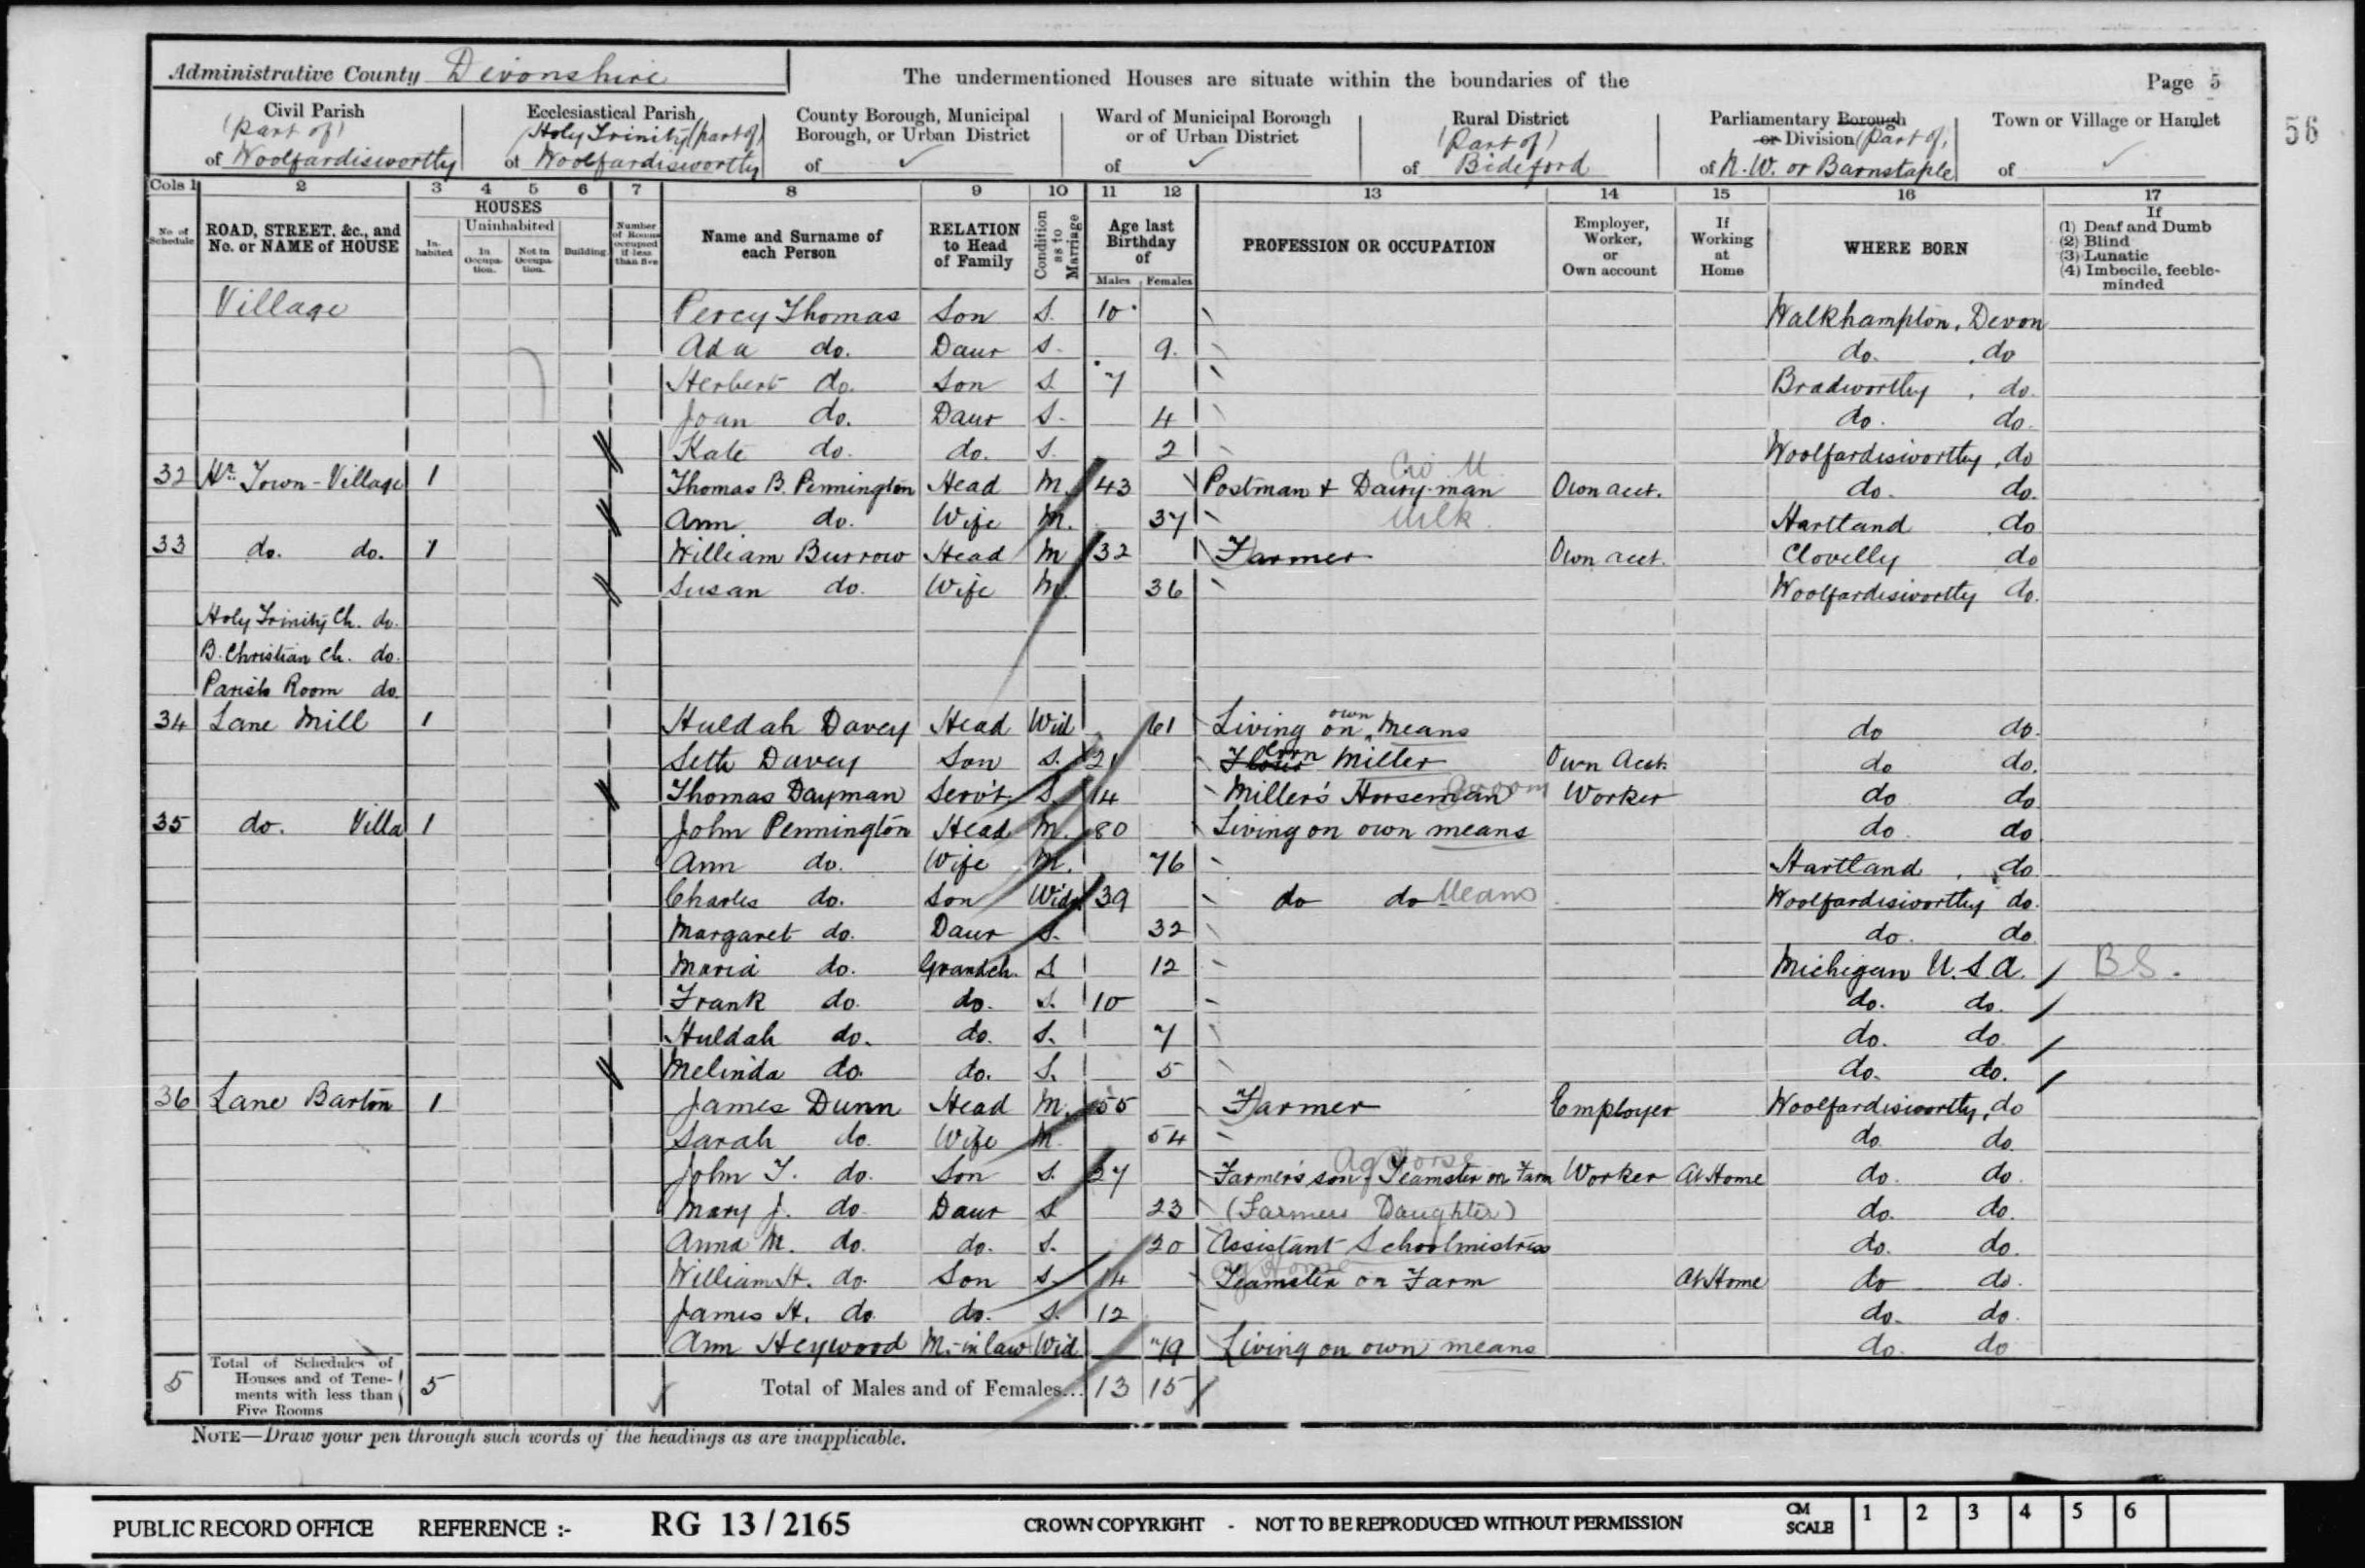 Administrative County Devonshire
The undermentioned Houses are situate within the boundaries of the
Page 5
56
Civil Parish (Part of) of Woolfardisworthy
Ecclesiastical Parish Holy Trinity (part of) of Woolfardisworthy
County Borough, Municipal Borough, or Urban District of ✓
Ward of Municipal Borough or of Urban District of ✓
Rural District (Part of) of Bideford
Parliamentary Borough or Division (Part of) of N.W. or Barnstaple
Town or Village or Hamlet of ✓
Cols 1 2 3 4 5 6 7 8 9 10 11 12 13 14 15 16 17
No of Schedule
ROAD, STREET, &c., and No. or NAME of HOUSE
HOUSES
Inhabited
Uninhabited
In Occupation.
Not in Occupation.
Building
Number of Rooms occupied if less than five
Name and Surname of each Person
RELATION to Head of Family
Condition as to Marriage
Age last Birthday of
Males Females
PROFESSION OR OCCUPATION
Employer, Worker, or Own account
If Working at Home
WHERE BORN
If
(1) Deaf and Dumb
(2) Blind
(3) Lunatic
(4) Imbecile, feeble-minded
Village Percy Thomas Son S. 10 Walkhampton, Devon
Ada do. Daur S. 9. do. do
Herbert do. Son S. 7 Bradworthy, do.
Joan do. Daur S. 4 do. do.
Kate do. do. S. 2 Woolfardisworthy, do
32 Hr. Town - Village 1 Thomas B. Pennington Head M. 43 Postman & Dairy-man Own acct. do. do.
Ann do. Wife M. 37 Milk Hartland do
33 do. do. 1 William Burrow Head M 32 Farmer Own acct. Clovelly do
Susan do. Wife M. 36 Woolfardisworthy do.
Holy Trinity Ch. do.
B. Christian Ch. do.
Parish Room do.
34 Lane Mill 1 Huldah Davey Head Wid 61 Living on own Means do do.
Seth Davey Son S. 21 Flour Corn Miller Own Acct. do do.
Thomas Dayman Serv't S. 14 Miller's Horseman Groom Worker do do
35 do. Villa 1 John Pennington Head M. 80 Living on own means do do.
Ann do. Wife M. 76 Hartland, do
Charles do. Son Widr 39 do do Means Woolfardisworthy do.
Margaret do. Daur S. 32 do. do.
Maria do. Grandch. S. 12 Michigan U.S.A. B.S.
Frank do. do. S. 10 do. do.
Huldah do. do. S. 7 do. do.
Melinda do. do. S. 5 do. do.
36 Lane Barton 1 James Dunn Head M. 55 Farmer Employer Woolfardisworthy, do
Sarah do. Wife M. 54 do. do.
John T. do. Son S. 27 Ag Horse Farmer's son, Teamster on Farm Worker At Home do. do.
Mary J. do Daur S 23 (Farmers Daughter) do. do.
Anna M. do. do. S. 20 Assistant Schoolmistress do. do.
William H. do. Son S. 14 Teamster on Farm At Home do do.
James H. do. do. S. 12 do. do.
Ann Heywood M.-in law Wid 79 Living on own means do. do
5 Total of Schedules of Houses and of Tenements with less than Five Rooms 5 Total of Males and of Females... 13 15
NOTE—Draw your pen through such words of the headings as are inapplicable.
PUBLIC RECORD OFFICE REFERENCE :- RG 13 / 2165 CROWN COPYRIGHT - NOT TO BE REPRODUCED WITHOUT PERMISSION CM SCALE 1 2 3 4 5 6